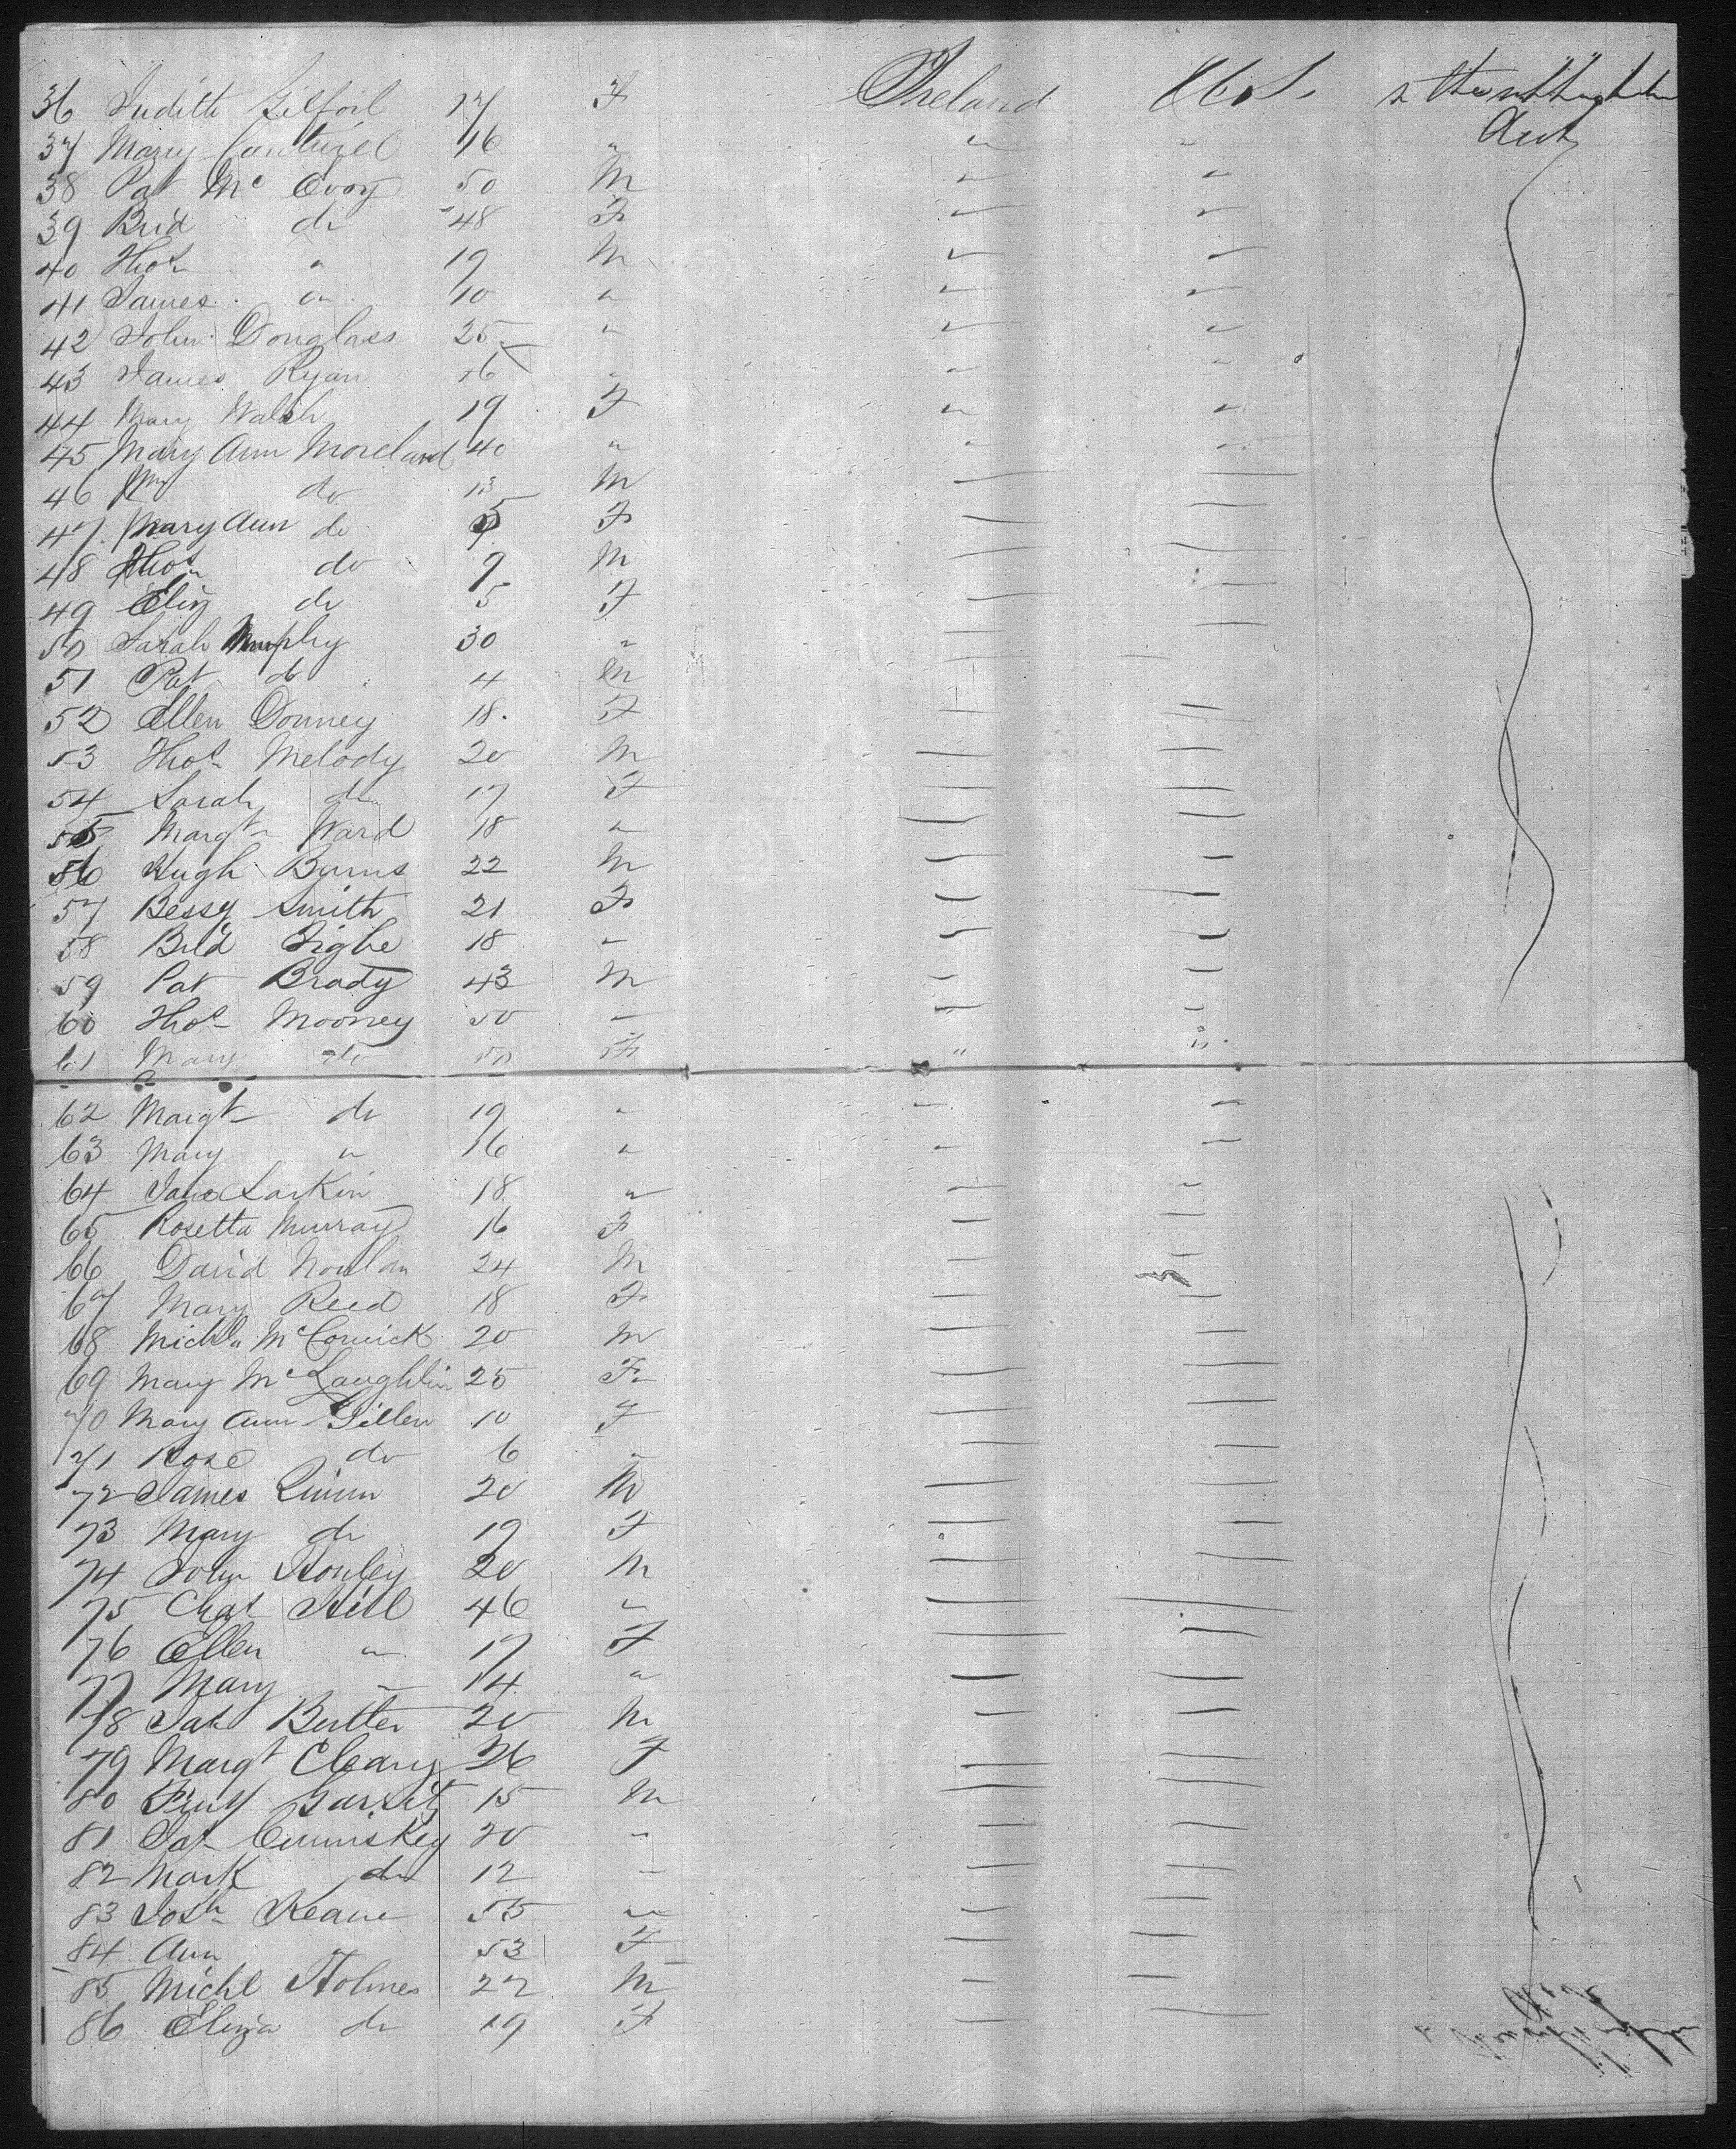 36 Judith Gilfoil 17 F Ireland U.S.
37 Mary Cantwell 16 " " "
38 Pat Mc Evoy 50 M " "
39 Brid do 48 F " "
40 Thos " 19 M " "
41 James " 10 " " "
42 John Douglass 25 " " "
43 James Ryan 16 " " "
44 Mary Walsh 19 F " "
45 Mary Ann Moreland 40 " " "
46 Wm do 13 M
47 Mary Ann do F
48 Thos do 9 M
49 Eliz do 5 F
50 Sarah Murphy 30 "
51 Pat do 4 M
52 Ellen Donney 18 F
53 Thos Melody 20 M
54 Sarah do 17 F
55 Margt Ward 18 "
56 Hugh Byrns 22 M
57 Bessy Smith 21 F
58 Brid 18 "
59 Pat Brady 43 M
60 Thos Mooney 50 "
61 Mary do 50 F " "
62 Margt do 19 "
63 Mary " 16 "
64 Jane Larkin 18 "
65 Rosetta Murray 16 F
66 David Nowlan 24 M
67 Mary Reed 18 F
68 Michl McCormick 20 M
69 Mary McLaughlin 25 F
70 Mary Ann Gillen 10 F
71 Rose do 6 "
72 James Quinn 20 M
73 Mary do 19 F
74 John 20 M
75 Chas Hill 46 "
76 Ellen " 17 F
77 Mary " 14 "
78 Pat Butler 20 M
79 Margt Cleary 26 F
80 15 M
81 Pat Cumiskey 20 "
82 Mark do 12 "
83 Josh Keane 55 "
84 Ann 53 F
85 Michl Holmes 22 M
86 Eliza do 19 F